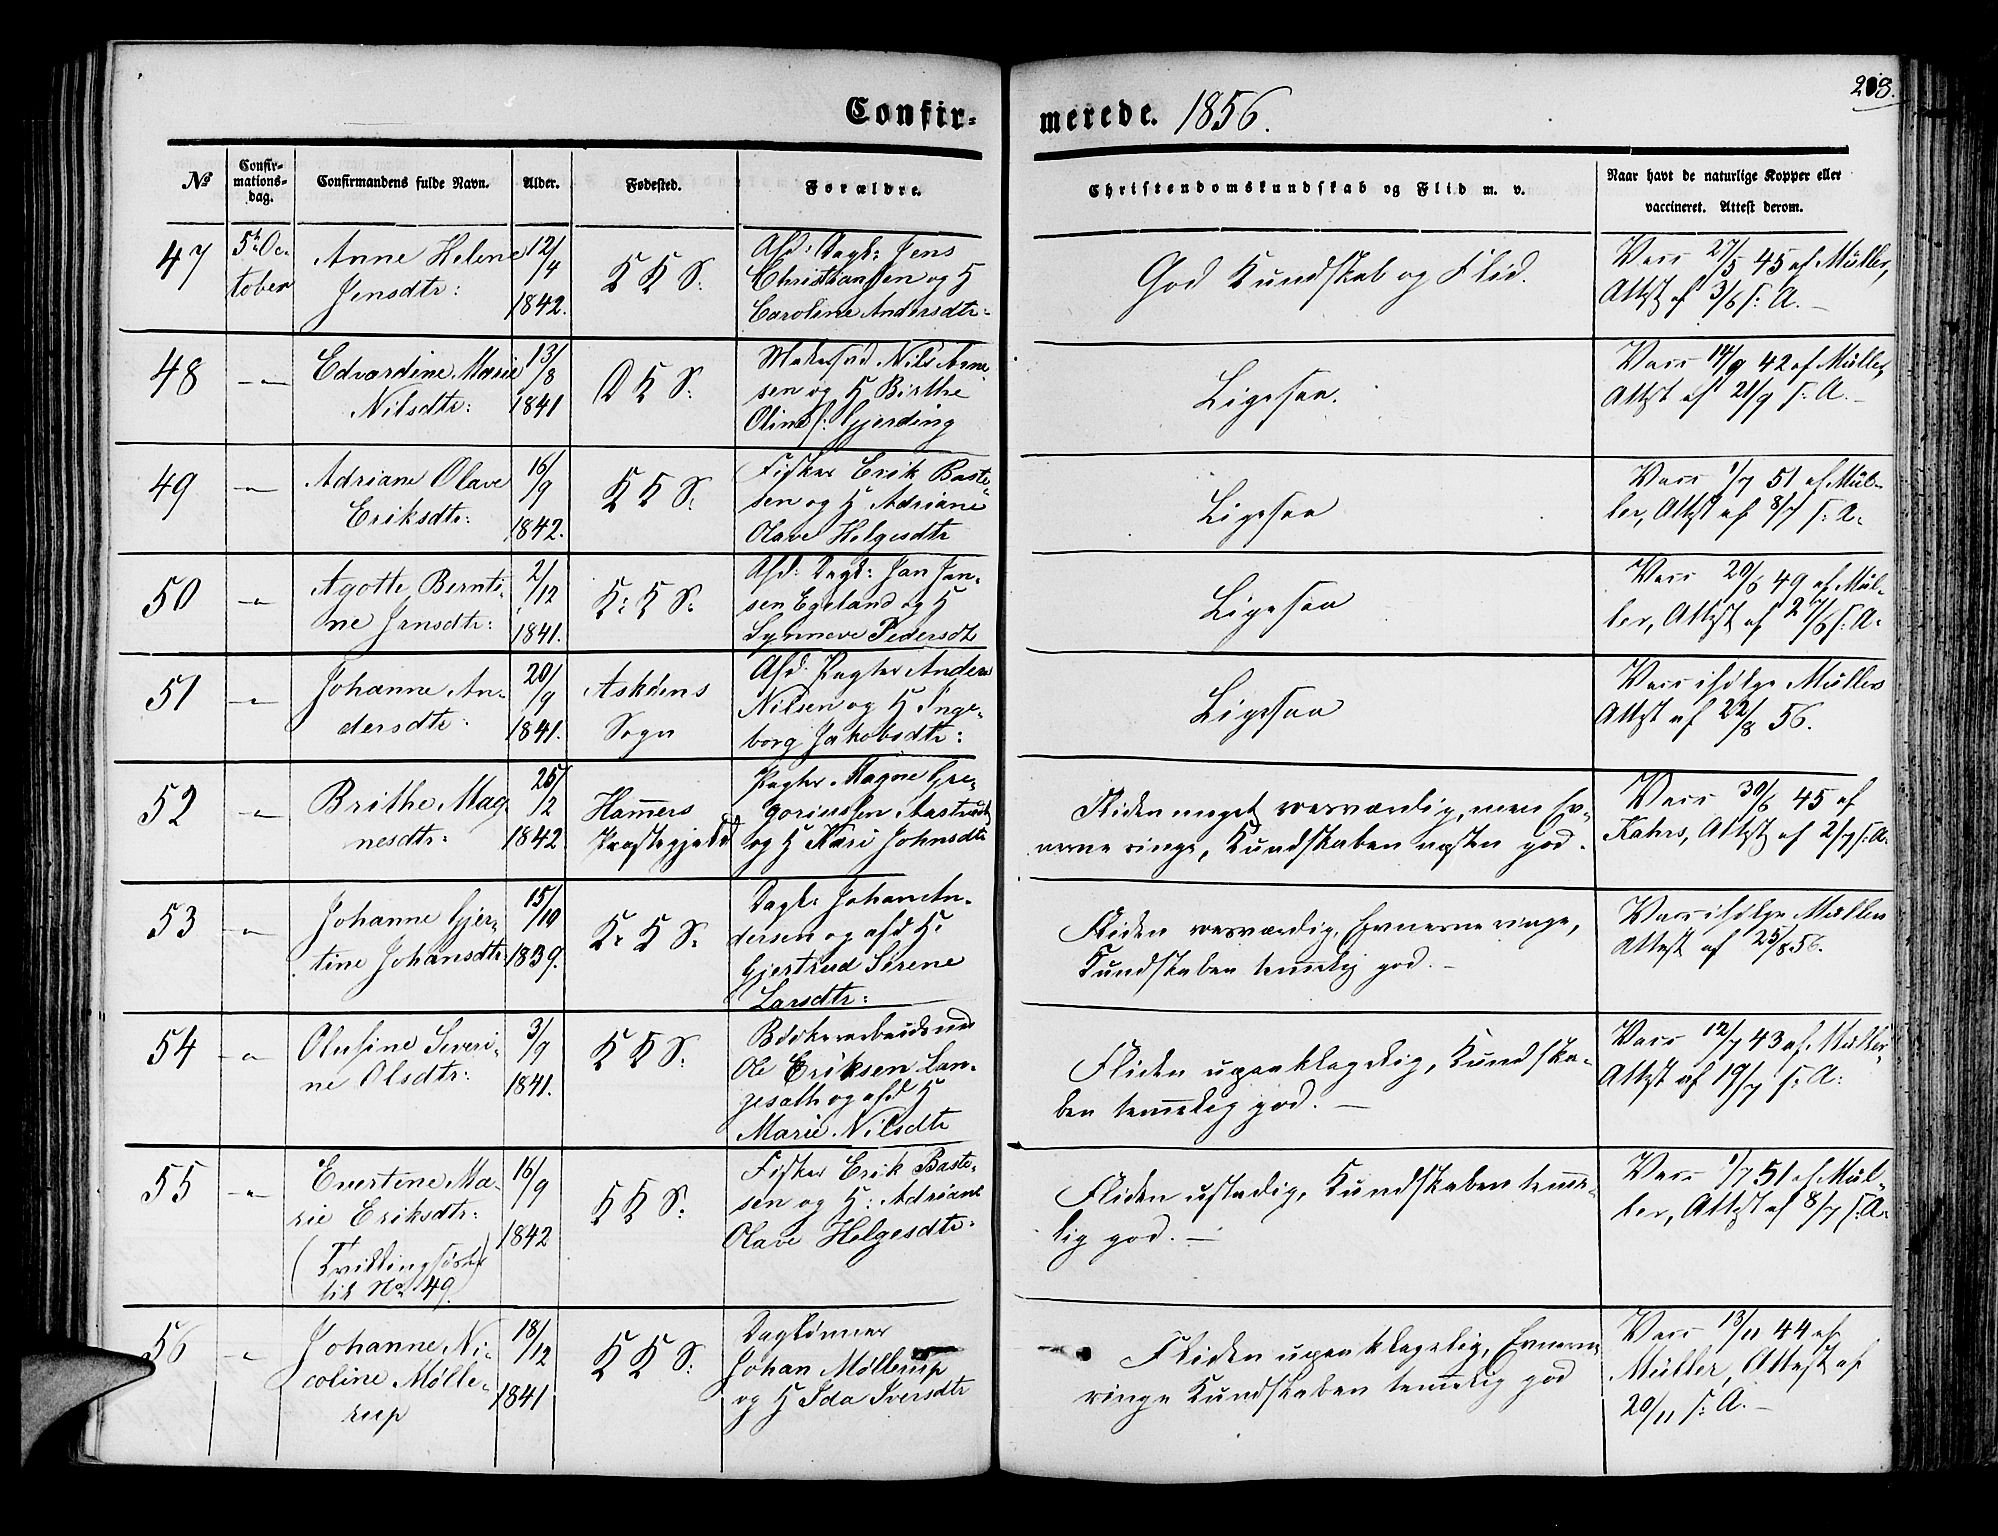 208.
Confirmerede. 1856.
№
Confir-
mations-
dag.
Confirmandens fulde Navn.
Alder.
Fødested.
Forældre.
Christendomskundskab og Flid m. v.
Naar havt de naturlige Kopper eller
vaccineret. Attest derom.
47
5te Oc-
tober
Anne Helene
Jensdtr:
12/4
1842.
K K S:
Afd: Dagl: Jens
Christiansen og H
Caroline Andersdtr:
God Kundskab og Flid.
Vacc 27/5 45 af Müller,
Attest af 3/6 s: A. –
48
–"–
Edvardine Marie
Nilsdtr:
13/8
1841
D K S:
Nils Arne-
sen og H Birthe
Oline f: Gjerding
Ligesaa.
Vacc 14/9 42 af Müller,
Attest af 21/9 s: A. –
49
–"–
Adriane Olave
Eriksdtr:
16/9
1842.
K K S:
Fisker Erik Baste-
sen og H Adriane
Olave Helgesdtr
Ligesaa
Vacc 1/7 51 af Mül-
ler, Attest af 8/7 s: A:
50
–"–
Agotte Bernti-
ne Jensdtr:
2/12
1841.
K: K S:
Afd: Dagl: Jan Jan-
sen Egeland og H
Synneve Pedersdtr
Ligesaa
Vacc 20/6 49 af Mül-
ler, Attest af 27/6 s: A:
51
–"–
Johanne An-
dersdtr:
20/9
1841.
Askøens
Sogn
Afd: Pagter Anders
Nilsen og H Inge-
borg Jakobsdtr:
Ligesaa
Vacc ifølge Müllers
Attest af 22/8 56.
52
–"–
Brithe Mag-
nesdtr:
25/2
1842
Hamers
Præstegjeld
Pagter Magne Gre-
goriussen
og H Kari Johnsdtr
Fliden meget roesværdig, men Ev-
nerne ringe, Kundskaben næsten god.
Vacc 30/6 45 af
Kahrs, Attest af 2/7 s: A.
53
–"–
Johanne Gjer-
tine Johansdtr
15/10
1839.
K: K S:
Dagl: Johan An-
dersen og afd H:
Gjertrud Serene
Larsdtr:
Fliden roesværdig, Evnerne ringe,
Kundskaben temelig god. –
Vacc ifølge Müllers
Attest af 25/8 56.
54
–"–
Olufine Severi-
ne Olsdtr:
3/9
1841.
K K S:
Bødkerarbeider
Ole Eriksen Lan-
gesæth og afd H
Marie Nilsdtr
Fliden upaaklagelig, Kundska-
ben temelig god. –
Vacc 12/7 43 af Müller
Attest af 19/7 s: A:
55
–"–
Evertine Ma-
rie Eriksdtr:
(Tvillingsøster
til No 49.)
16/9
1842
K K S:
Fisker Erik Baste-
sen og H: Adriane
Olave Helgesdtr:
Fliden ustadig, Kundskaben teme-
lig god. –
Vacc 1/7 51 af Mül-
ler, Attest af 8/7 s: A:
56
–"–
Johanne Ni-
coline Mølle-
rup
18/12
1841
K K S:
Daglønner
Johan Møllerup
og H Ida Iversdtr
Fliden upaaklagelig, Evnerne
ringe Kundskaben temelig god
Vacc 13/11 44 af
Müller, Attest af
20/11 s: A. –